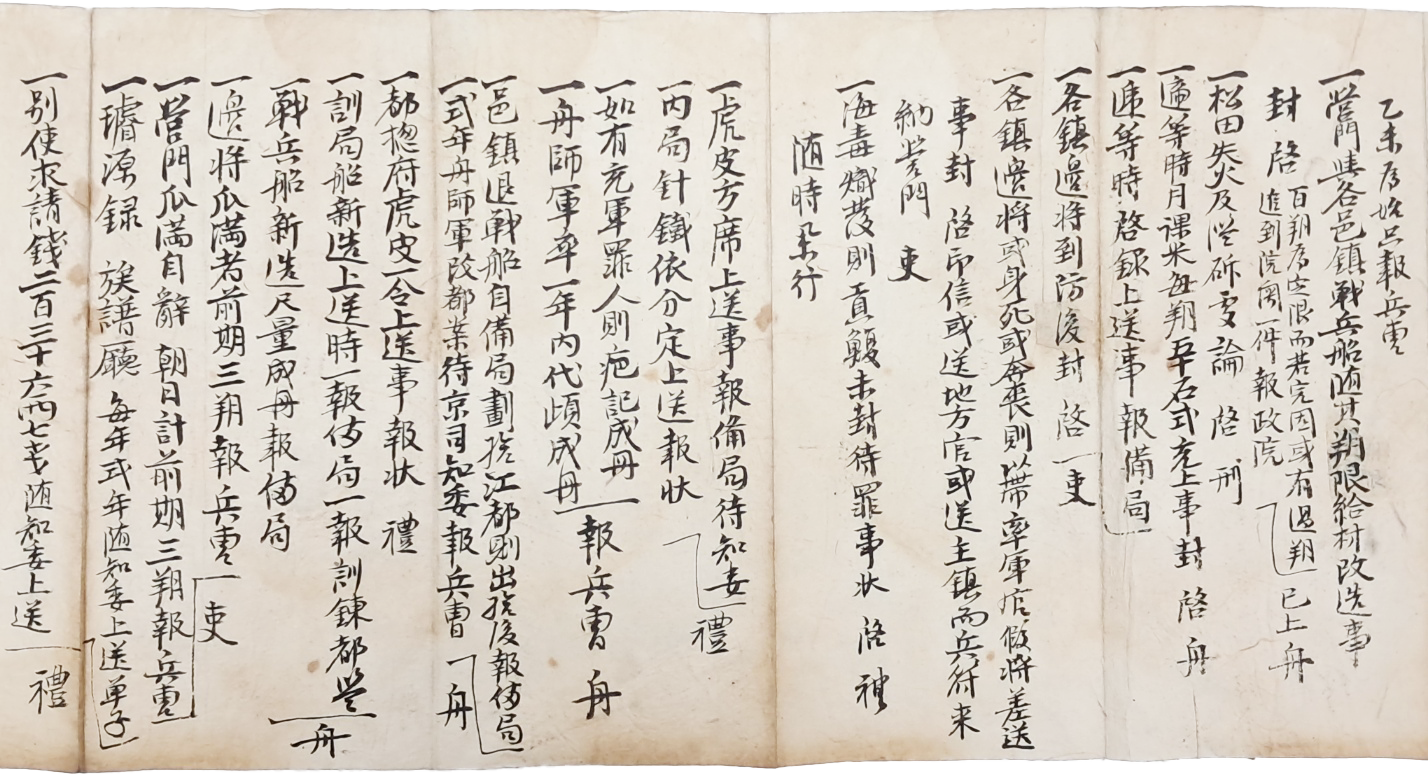 乙未爲始只報兵曹
一營門與各邑鎭戰兵船随其朔限給材改造事
封 啓 百朔爲定限而若完因或有過朔 已上 舟
追到院関一件報政院
一松田失火及從斫重論 啓 刑
一適等時月課米每朔五石式充上事封 啓 舟
一逓等時啓錄上送事報備局
一各鎭邊將到防後封 啓 吏
一各鎭邊將或身死或奔喪則帶率軍官假將差送
事封 啓印信或送地方官或送主鎭而兵符来
納營門 吏
一海毒熾發則貢鰒未封待罪事狀 啓 禮
随時采行
一虎皮方席上送事報備局待知委 禮
一内局針鐵依分定上送報狀
一如有充軍罪人則疤記成冊 報兵曹 舟
一舟師軍卒一年内代頉成冊
一邑鎭退戰船自備局劃給江都則出給後報俻局
一式年舟師軍改都案待京司知委報兵曹 舟
一都揔府虎皮一令上送事報狀 禮
一訓局船新造上送時一報俻局一報訓鍊都監
戰兵船新造尺量成冊報俻局 舟
一邊將瓜滿者前期三朔報兵曹 吏
一營門瓜滿自辭 朝日計前期三朔報兵曹
一璿源録 族譜廳 每年式年随知委上送單子
一別使求請錢二百三十六兩七戔随知委上送 禮